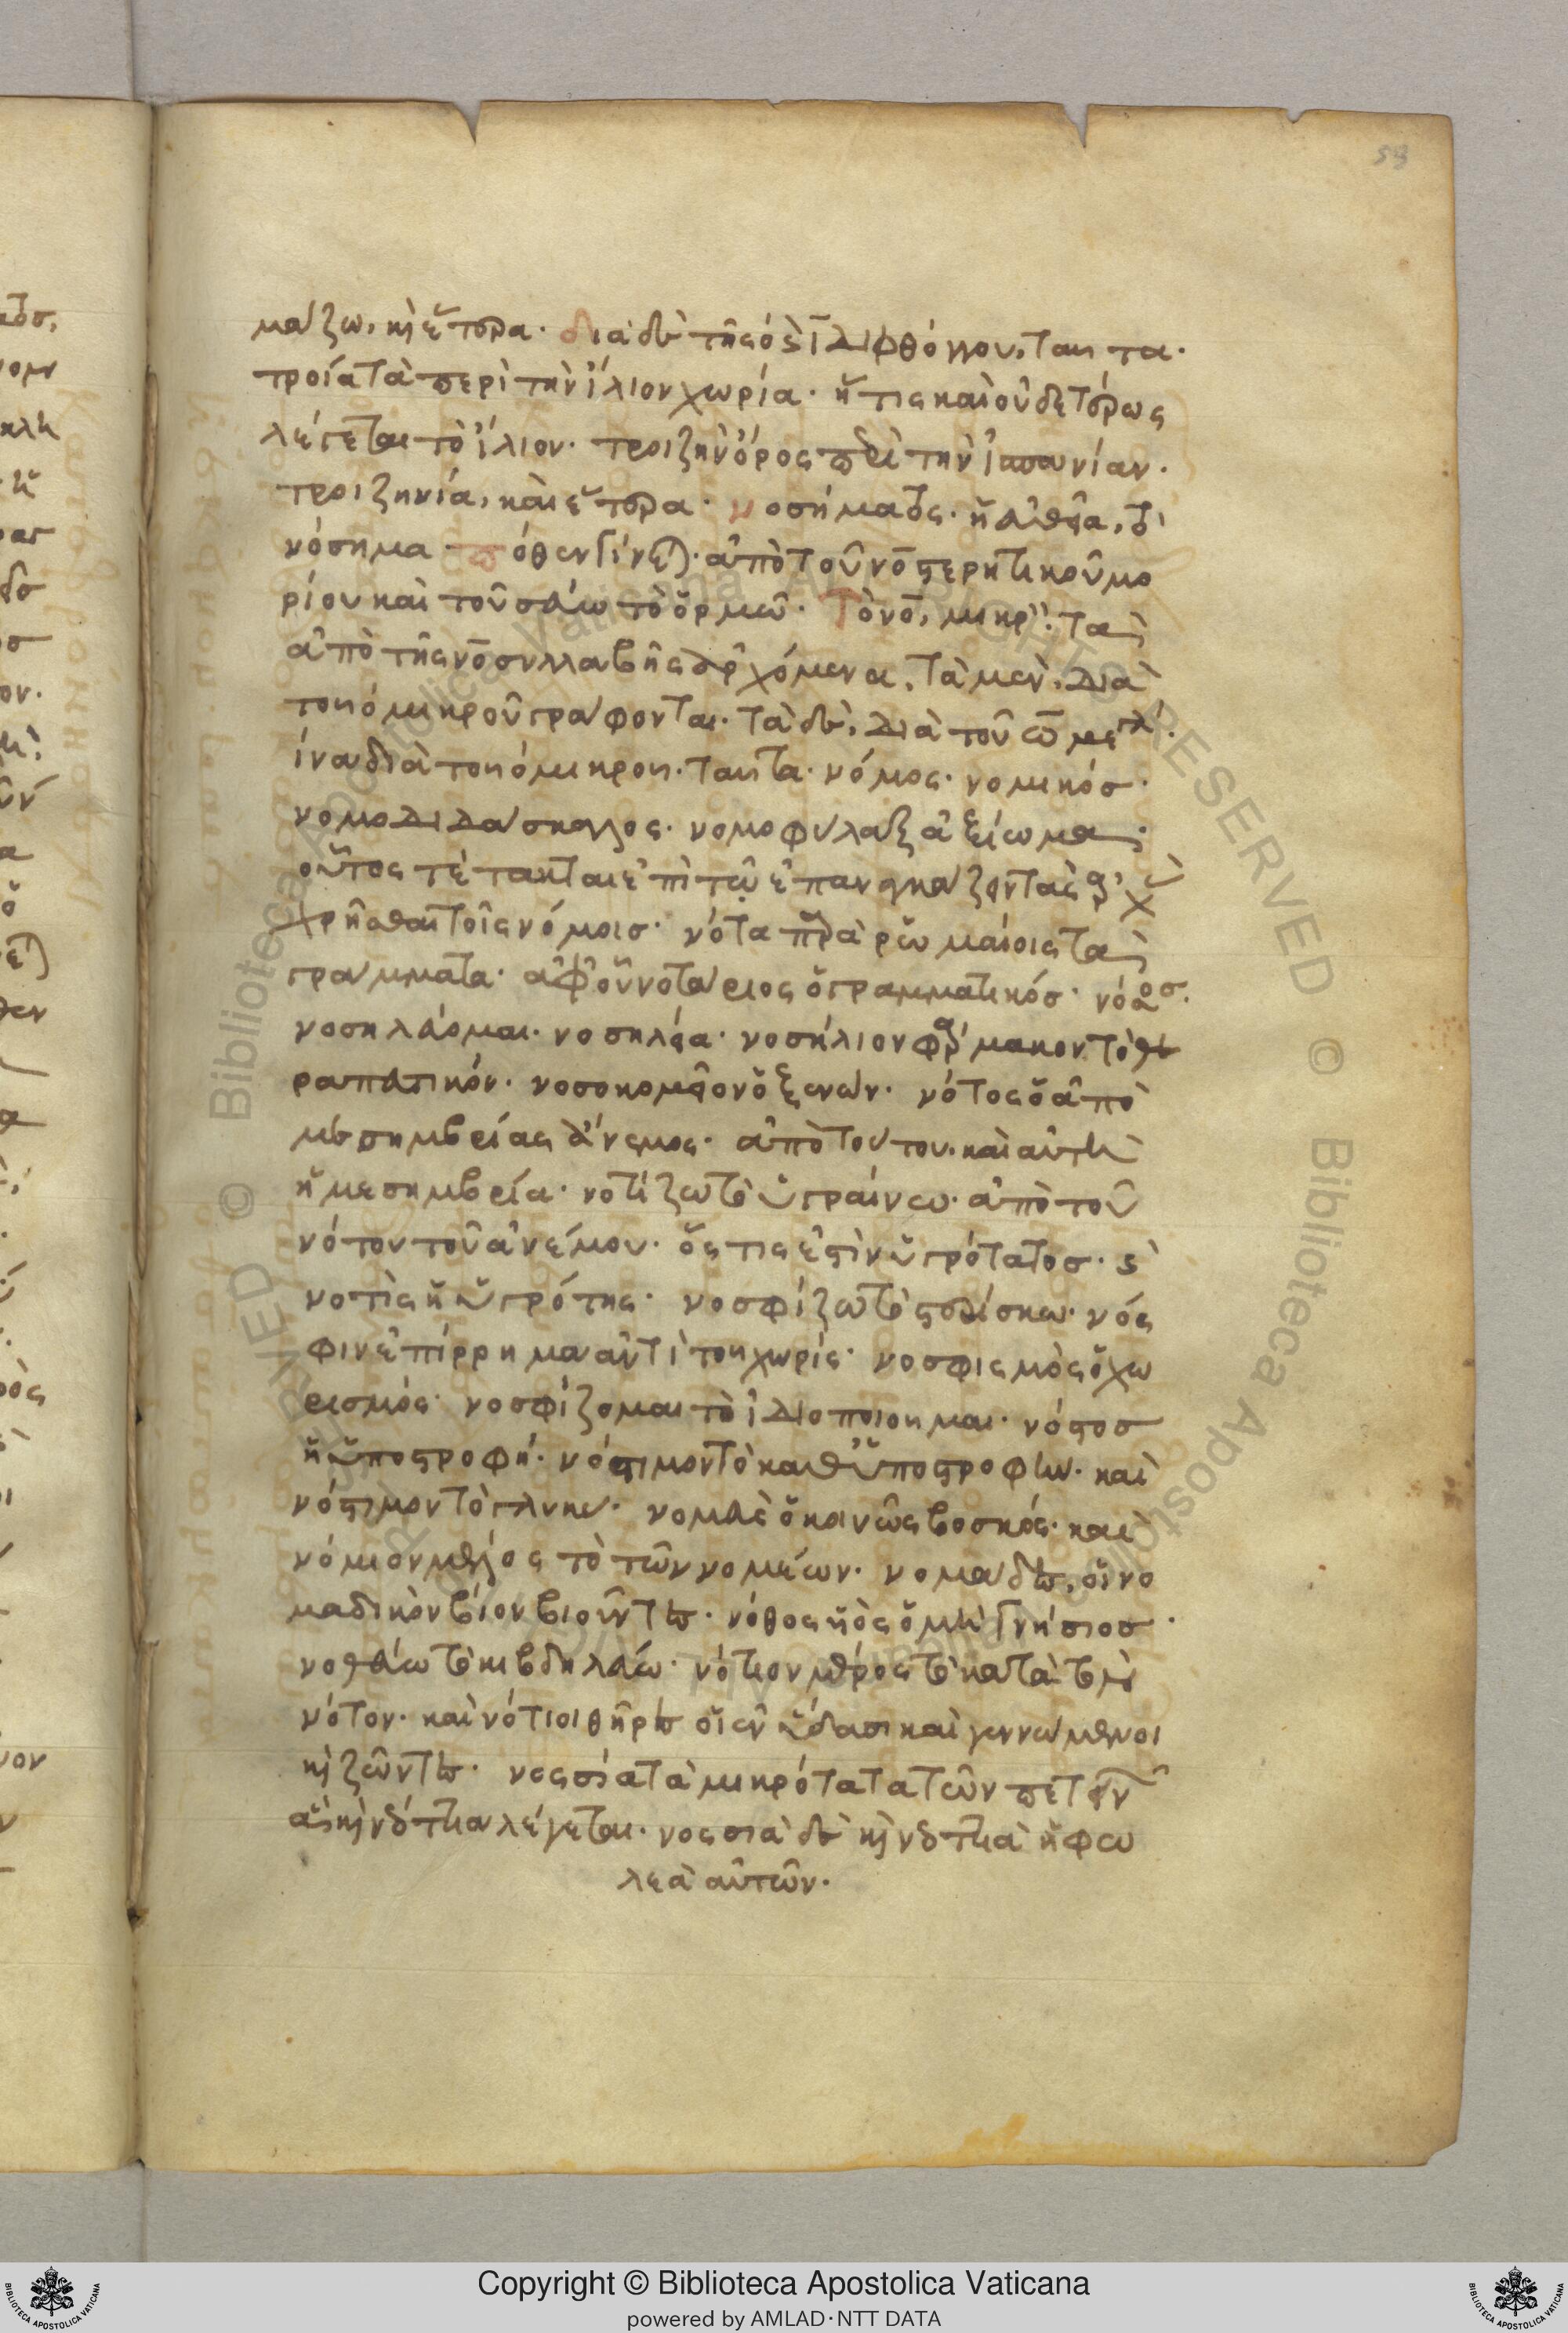 53
μάζω, κὶ ἕτερα· διὰ δὲ τῆς ο̅ ς ι̅ διφθόγγου, ταῦτα·
τροία τὰ περὶ τὴν ἴλιον χωρία· ἥτις καὶ οὐδετέρως
λέγεται τὸ ἴλιον· τροιζὴν ὄρος περὶ τὴν νίαν·
τροιζηνία, καὶ ἕτερα· νοσήματος· ἡ εὐθεῖα, τὸ
νόσημα· πόθεν γίνεται· ἀπὸ τοῦ νο̅ στερητικοῦ μο
ρίου καὶ τοῦ σεύω τὸ ὁρμῶ· Τὸ νο̅, μικρόν· τὰ
ἀπὸ τῆς νο̅ συλλαβῆς ἀρχόμενα, τὰ μὲν, διὰ
τοῦ ο μικροῦ γράφονται· τὰ δὲ, διὰ τοῦ ω̅ μεγάλου·
ἵνα διὰ τοῦ ο μικροῦ· ταῦτα· νόμος· νομικός·
νομοδιδάσκαλος· νομοφύλαξ ἀξίωμα·
οὗτος τέτακται ἐπὶ τῷ ἐπαναγκάζειν τὰς ἀρχὰς
χρῆσθαι τοῖς νόμοις· νότα παρὰ ῥωμαίοις τὰ
γράμματα· ἀφ' οὗ νοτάριος ὁ γραμματικός· νόσος·
νοσηλεύομαι· νοσηλεία· νοσήλιον φάρμακον τὸ θε
ραπευτικόν· νοσοκομεῖον ὁ ξενών· νότος ὁ ἀπὸ
μεσημβρίας ἄνεμος· ἀπὸ τούτου· καὶ αὐτὴ
ἡ μεσημβρία· νοτίζω τὸ ὑγραίνω· ἀπὸ τοῦ
νότου τοῦ ἀνέμου· ὅστις ἐστὶν ὑγρότατος· ς
νοτὶς ἡ ὑγρότης· νοσφίζω τὸ στερίσκω· νόσ
φιν ἐπίρρημα ἀντὶ τοῦ χωρίς· νοσφισμὸς ὁ χω
ρισμός· νοσφίζομαι τὸ ἰδιοποιοῦμαι· νόστος
ἡ ὑποστροφή· νόστιμον τὸ καθ' ὑποστροφήν· καὶ
νόστιμον τὸ γλυκύ· νομεὺς ὁ κοινῶς βοσκός· καὶ
νόμιον μέλος τὸ τῶν νομέων· νομάδες, οἱ νο
μαδικὸν βίον βιοῦντες· νόθος υἱὸς ὁ μὴ γνήσιος·
νοθεύω τὸ κιβδηλεύω· νότιον μέρος τὸ κατὰ τὸν
νότον· καὶ νότιοι θῆρες οἱ ἐν ὕδασι καὶ γεννώμενοι
κὶ ζῶντες· νοσσία τὰ μικρότατα τῶν πετεινῶν
ἃ κὶ νεοττία λέγεται· νοσσιὰ δὲ κὶ νεοττιὰ ἡ φω
λεὰ αὐτῶν·
Copyright © Biblioteca Apostolica Vaticana
powered by AMLAD·NTT DATA